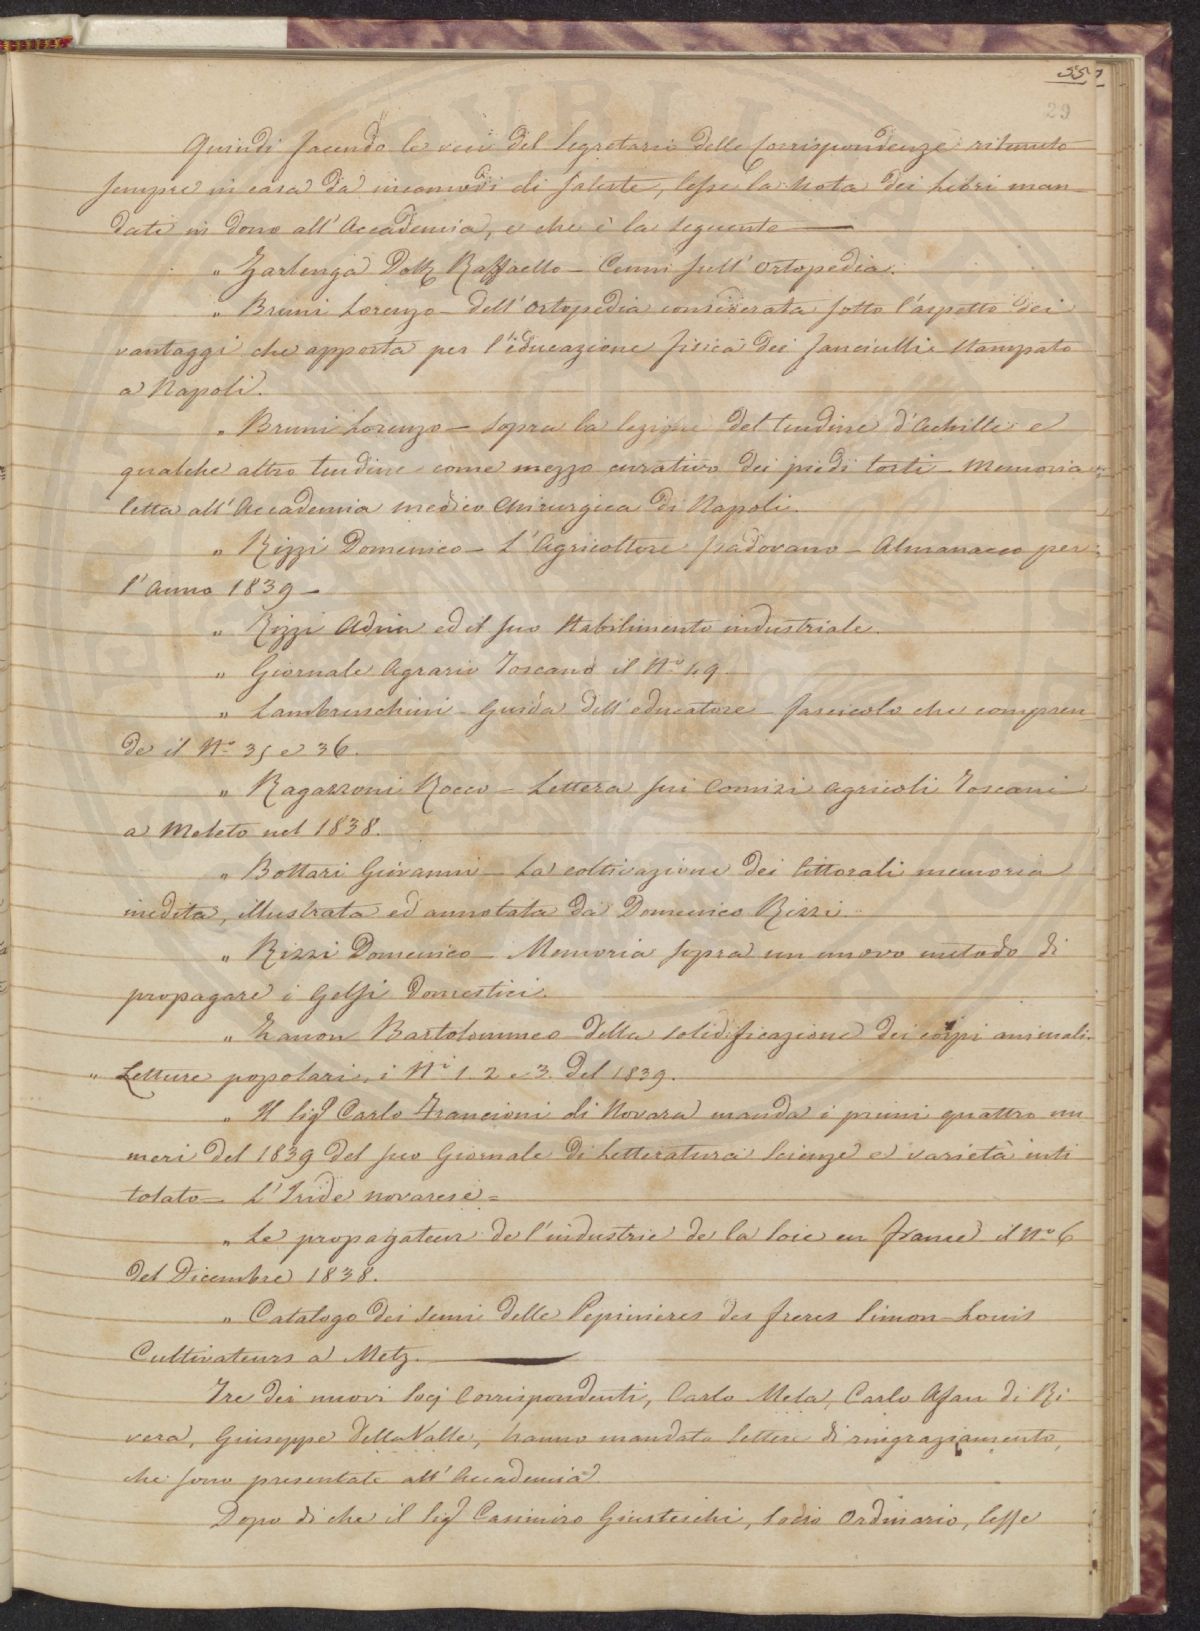 55
29
Quindi facendo le veci del Segretario delle Corrispondenze ritenuto
sempre in casa da incomodi di salute, lesse la Nota dei Libri man-
dati in dono all'Accademia, e che è la seguente —
„ Zarlenga Dott. Raffaello — Cenni sull'Ortopedia.
„ Bruni Lorenzo — dell'Ortopedia considerata sotto l'aspetto dei
vantaggi che apporta per l'educazione fisica dei fanciulli. Stampato
a Napoli.
„ Bruni Lorenzo — Sopra la lezione del tendine d'Achille e
qualche altro tendine come mezzo curativo dei piedi torti — Memoria
letta all'Accademia medico Chirurgica di Napoli.
„ Rizzi Domenico — L'Agricoltore padovano — Almanacco per
l'anno 1839 —
„ Rizzi Adria ed il suo Stabilimento industriale.
„ Giornale Agrario Toscano il N.º 49
„ Lambruschini — Guida dell'educatore — fascicolo che compren
de il N.º 35 e 36.
„ Ragazzoni Rocco — Lettera sui Comizi agricoli Toscani
a Meleto nel 1838.
„ Bottari Giovanni — La coltivazione dei littorali memoria
inedita, illustrata ed annotata da Domenico Rizzi.
„ Rizzi Domenico — Memoria sopra un nuovo metodo di
propagare i Gelsi domestici.
„ Zanon Bartolommeo — Della solidificazione dei corpi animali.
„ Letture popolari, i N.i 1. 2 e 3. del 1839.
„ Il Sig. Carlo Francioni di Novara manda i primi quattro nu
meri del 1839 del suo Giornale di Letteratura Scienze e varietà inti
tolato — L'Iride novarese =
„ Le propagateur de l'industrie de la Soie en france il N.º 6
del Dicembre 1838.
„ Catalogo dei Semi delle Pepinieres des freres Simon-Louis
Cultivateurs a Metz. —
Tre dei nuovi Socj Corrispondenti, Carlo Mela, Carlo Afan di Ri
vera, Giuseppe Della Valle, hanno mandato lettere di ringraziamento,
che sono presentate all'Accademia.
Dopo di che il Sig. Casimiro Giusteschi, Socio Ordinario, lesse